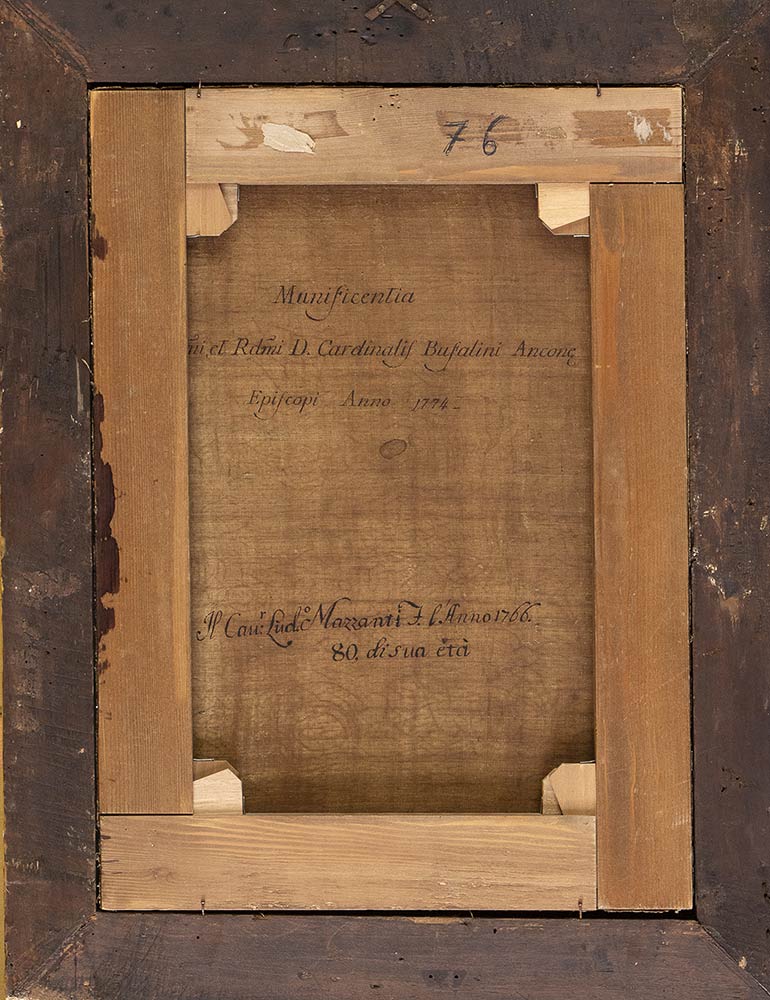 76
Munificentia
ñi et Rdm̃i D. Cardinalis Bufalini Anconę
Episcopi Anno 1774
Il Cau.r Lud.o Mazzanti F. l'Anno 1766.
80. di sua età